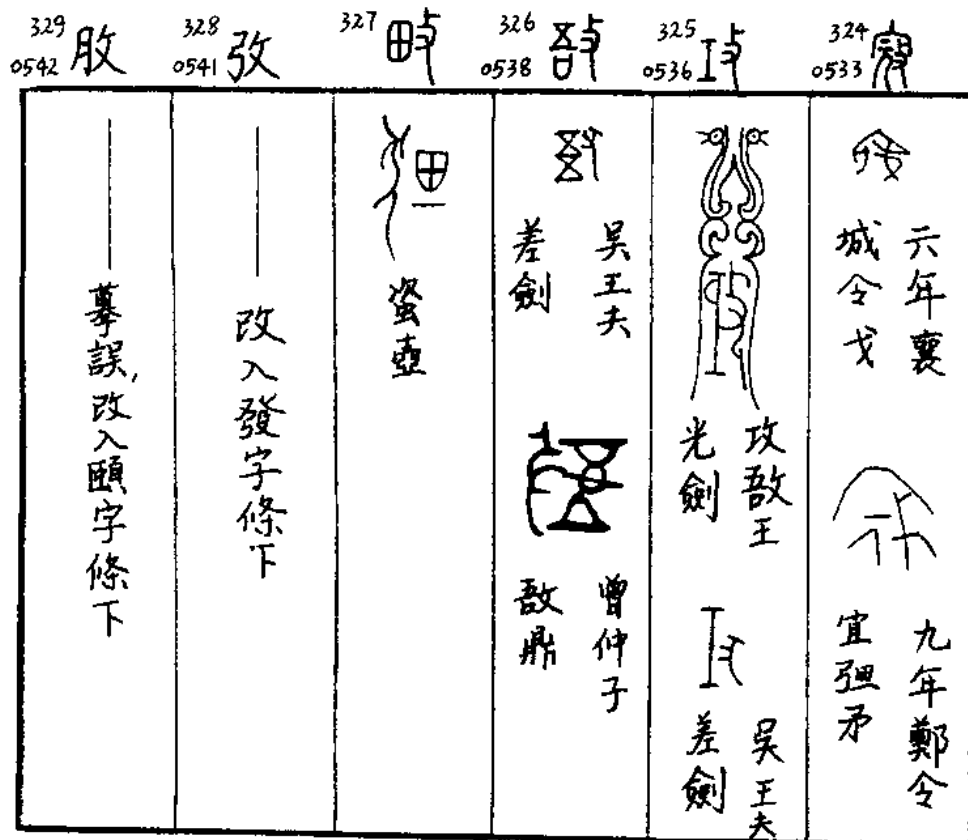 324
0533 寇
六年襄
城令戈
九年鄭令
宜彊矛
325
0536 攻
攻敔王
光劍
吳王夫
差劍
326
0538 敔
吳王夫
差劍
曾仲子
敔鼎
327 畋
壺
328
0541
改入發字條下
329
0542
摹誤,改入頤字條下